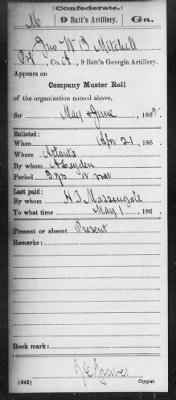 (Confederate.)
M 9 Batt'n Artillery. Ga.
Jno W B Mitchell
Pvt, Co. A, 9 Batt'n Georgia Artillery.
Appears on
Company Muster Roll
of the organization named above,
for May & June, 186
Enlisted:
When Apr 21, 186
Where Atlanta
By whom A Leyden
Period 3 yrs or war
Last paid:
By whom H T Massengale
To what time May 1, 186
Present or absent Present
Remarks:
Book mark:
(642) Copyist.